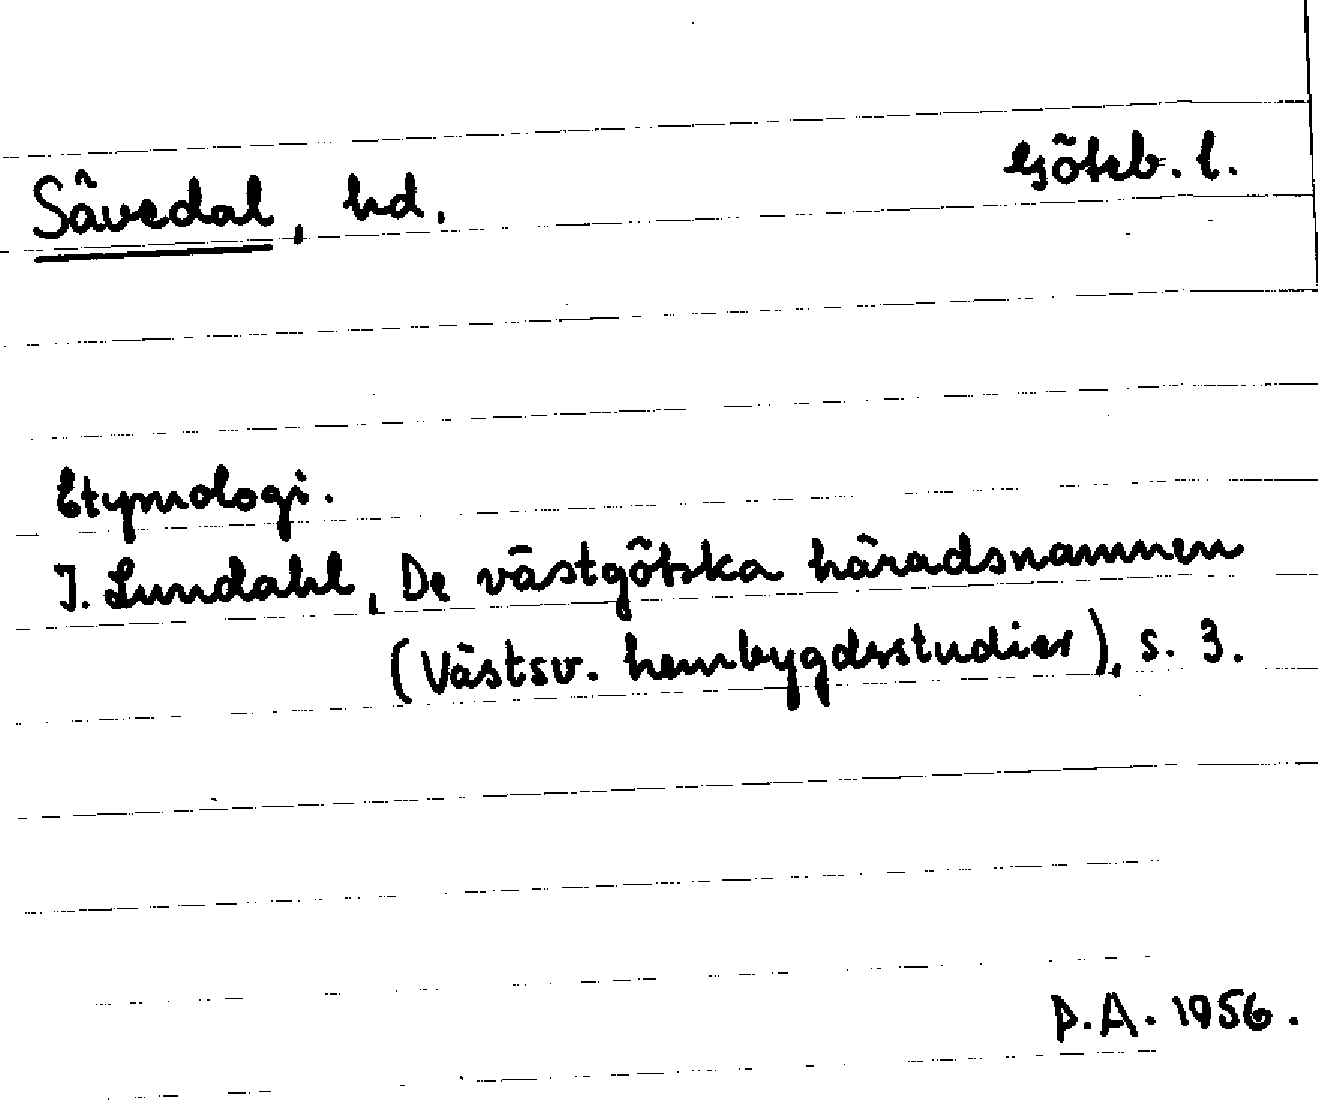 Sävedal, hd. Göteb. l.
Etymologi.
I. Lundahl, De västgötska häradsnamnen
(Västsv. hembygdsstudier), s. 3.
P.A. 1956.